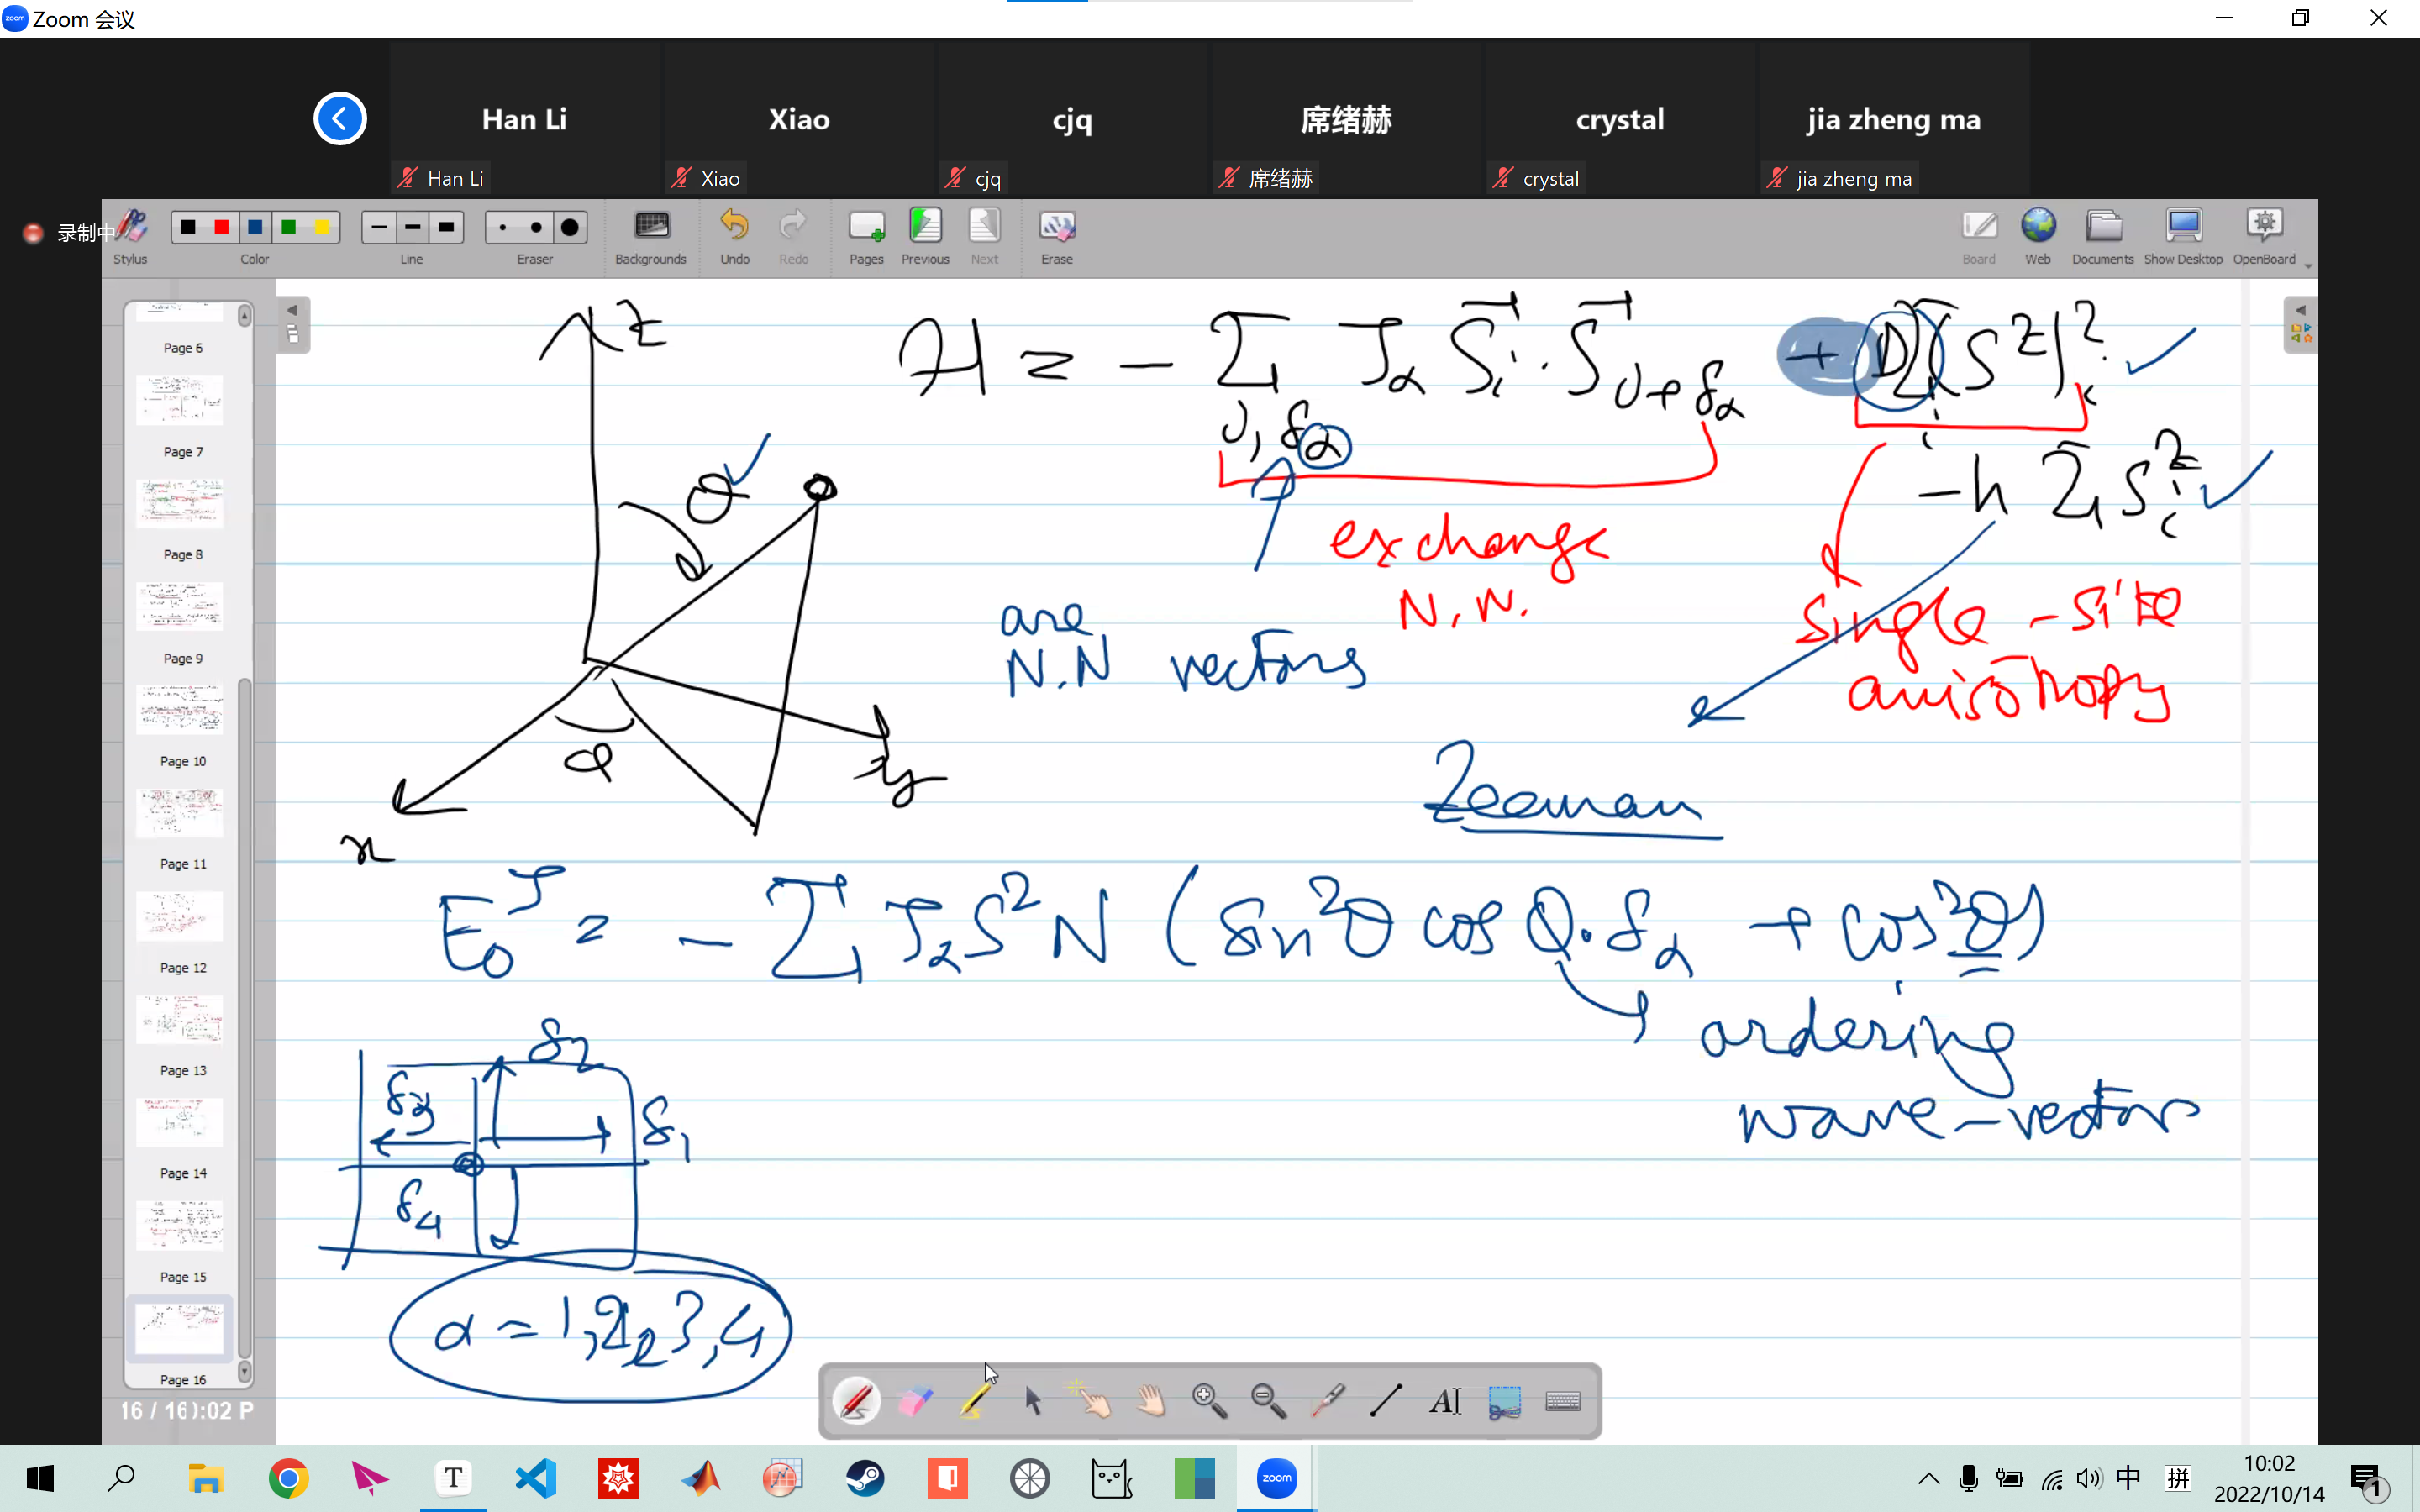 Zoom 会议
Han Li
Xiao
cjq
席绪赫
crystal
jia zheng ma
Han Li
Xiao
cjq
席绪赫
crystal
jia zheng ma
录制中
Stylus
Color
Line
Eraser
Backgrounds
Undo
Redo
Pages
Previous
Next
Erase
Board
Web
Documents
Show Desktop
OpenBoard
Page 6
Page 7
Page 8
Page 9
Page 10
Page 11
Page 12
Page 13
Page 14
Page 15
Page 16
z
H = - Σ J_α S⃗_i · S⃗_{j+δ_α} + D Σ (S^z)_i^2
j, δ_α
i
- h Σ S_i^z
i
θ
φ
x
y
exchange
N.N.
are
N.N vectors
single-site
anisotropy
Zeeman
E_0^J = - Σ J_α S^2 N (sin^2θ cos Q·δ_α + cos^2θ)
ordering
wave-vector
δ_2
δ_3
δ_1
δ_4
α = 1,2,3,4
16 / 16
:02 P
10:02
2022/10/14
中
拼
zoom
1